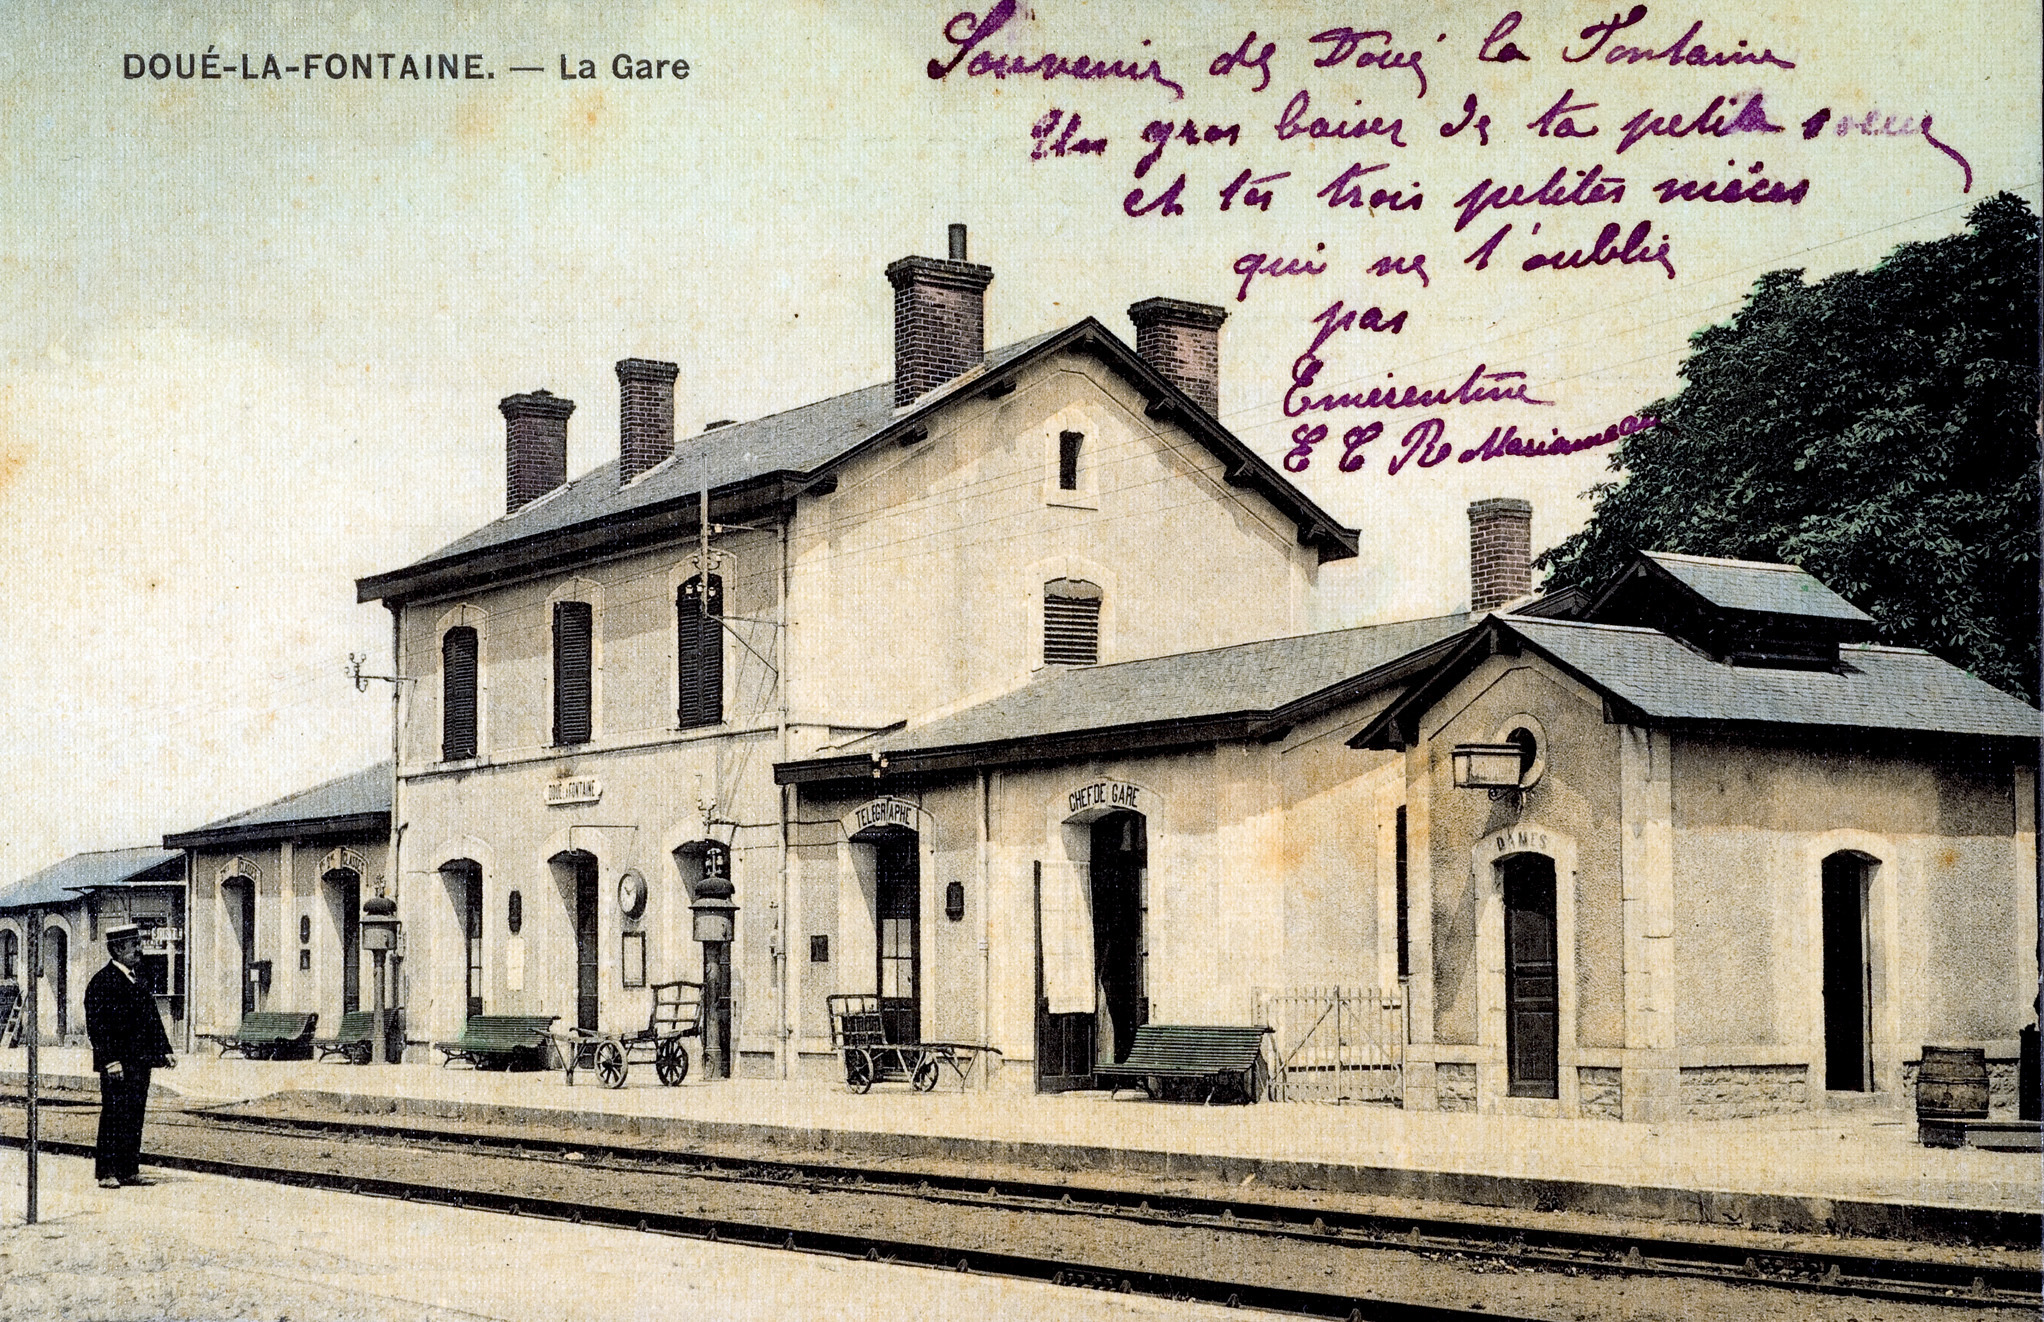 DOUÉ-LA-FONTAINE. — La Gare
Souvenir de Doué la Fontaine
Un gros baiser de ta petite soeur
et tes trois petites nièces
qui ne t'oublie
pas
Emerentine
E T R Marianneau
DOUÉ LA FONTAINE
TÉLÉGRAPHE
CHEF DE GARE
DAMES
CLASSES
CLASSES